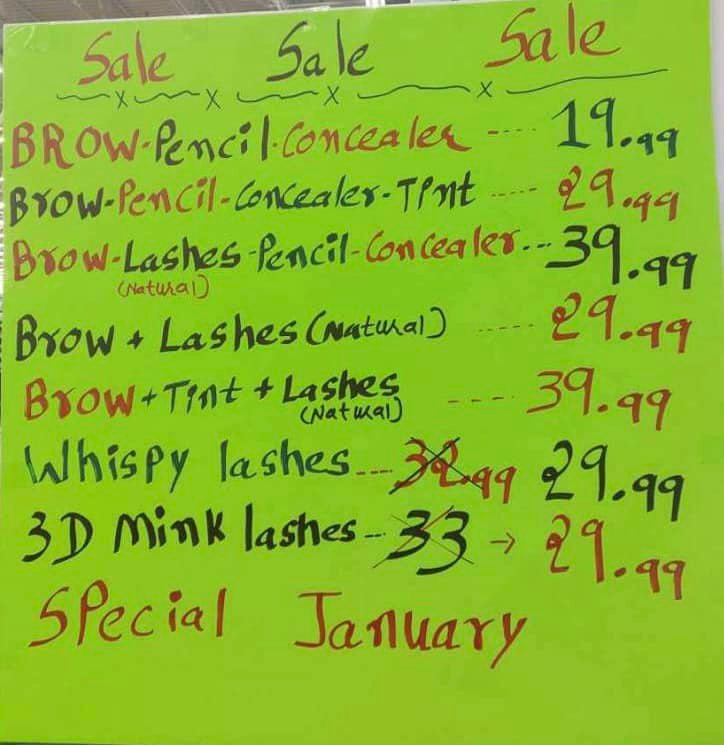 Sale Sale Sale
BROW-Pencil-Concealer ---- 19.99
Brow-Pencil-Concealer-Tint ---- 29.99
Brow-Lashes-Pencil-Concealer--- 39.99
(Natural)
Brow + Lashes (Natural) ---- 29.99
Brow + Tint + Lashes ---- 39.99
(Natural)
Whispy lashes---- 32.99 29.99
3D Mink lashes-- 33 → 29.99
Special January